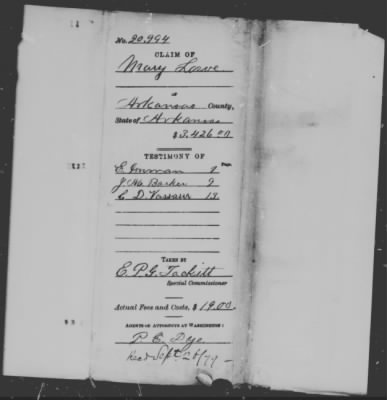 No. 20,994
CLAIM OF
Mary Lowe
Arkansas County,
State of Arkansas
$3,426.00
TESTIMONY OF
Page.
E Inman 1
J. M. Barker 9
C D. Vassaur 13
TAKEN BY
E. P. G. Tackett
Special Commissioner
Actual Fees and Costs, $19.00
AGENTS OR ATTORNEYS AT WASHINGTON:
P. E. Dye
Recd Sept. 26/79